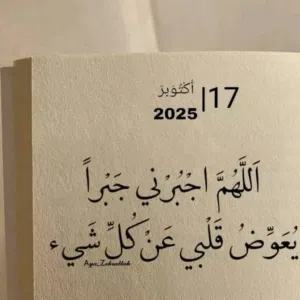 17| أكتوبر
2025
اَللَّهُمَّ اجْبُرْني جَبْراً
يُعَوِّضُ قَلْبي عَنْ كُلِّ شَيء
Aya_Zakaallah